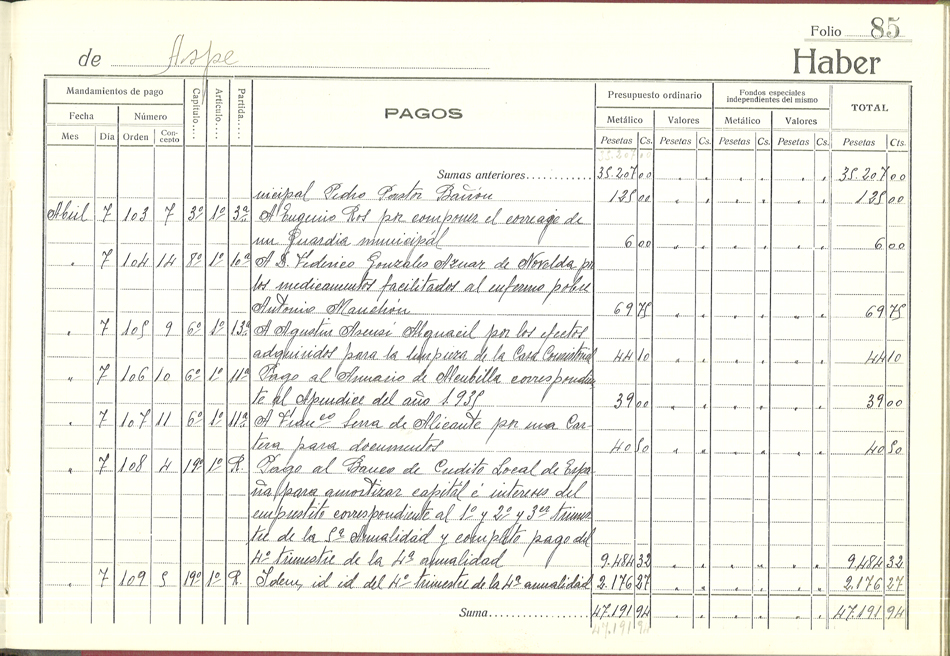 Folio 85
de Aspe Haber
Mandamientos de pago Capítulo.... Artículo.... Partida.... PAGOS Presupuesto ordinario Fondos especiales independientes del mismo TOTAL
Fecha Número Metálico Valores Metálico Valores
Mes Día Orden Concepto Pesetas Cs. Pesetas Cs. Pesetas Cs. Pesetas Cs. Pesetas Cts.
35.207 00
Sumas anteriores............ 35.207 00 35.207 00
nicipal Pedro Pastor 125 00 125 00
Abril 7 103 7 3º 1º 3ª A Eugenio Ros por componer el correage de
un Guardia municipal 6 00 6 00
" 7 104 14 8º 1º 10ª A D. Federico Gonzales Aznar de Novelda por
los medicamentos facilitados al enfermo pobre
Antonio Manchón 69 75 69 75
" 7 105 9 6º 1º 13ª A Agustin Asensi Alguacil por los efectos
adquiridos para la limpieza de la Casa Consistorial 44 10 44 10
" 7 106 10 6º 1º 11ª Pago al Anuario de correspondien
te al Apendice del año 1935 39 00 39 00
" 7 107 11 6º 1º 11ª A Franco Serra de Alicante por una Car-
tera para documentos 40 50 40 50
" 7 108 4 19º 1º R. Pago al Banco de Credito Local de Espa
ña para amortizar capital é intereses del
empréstito correspondiente al 1º y 2º y 3er trimes
tre de la 5ª Anualidad y completo pago del
4º trimestre de la 4ª anualidad 9.484 32 9.484 32
" 7 109 5 19º 1º R. Idem, id id del 4º trimestre de la 4ª anualidad 2.176 27 2.176 27
Suma............ 47.191 94 47.191 94
47.191 94